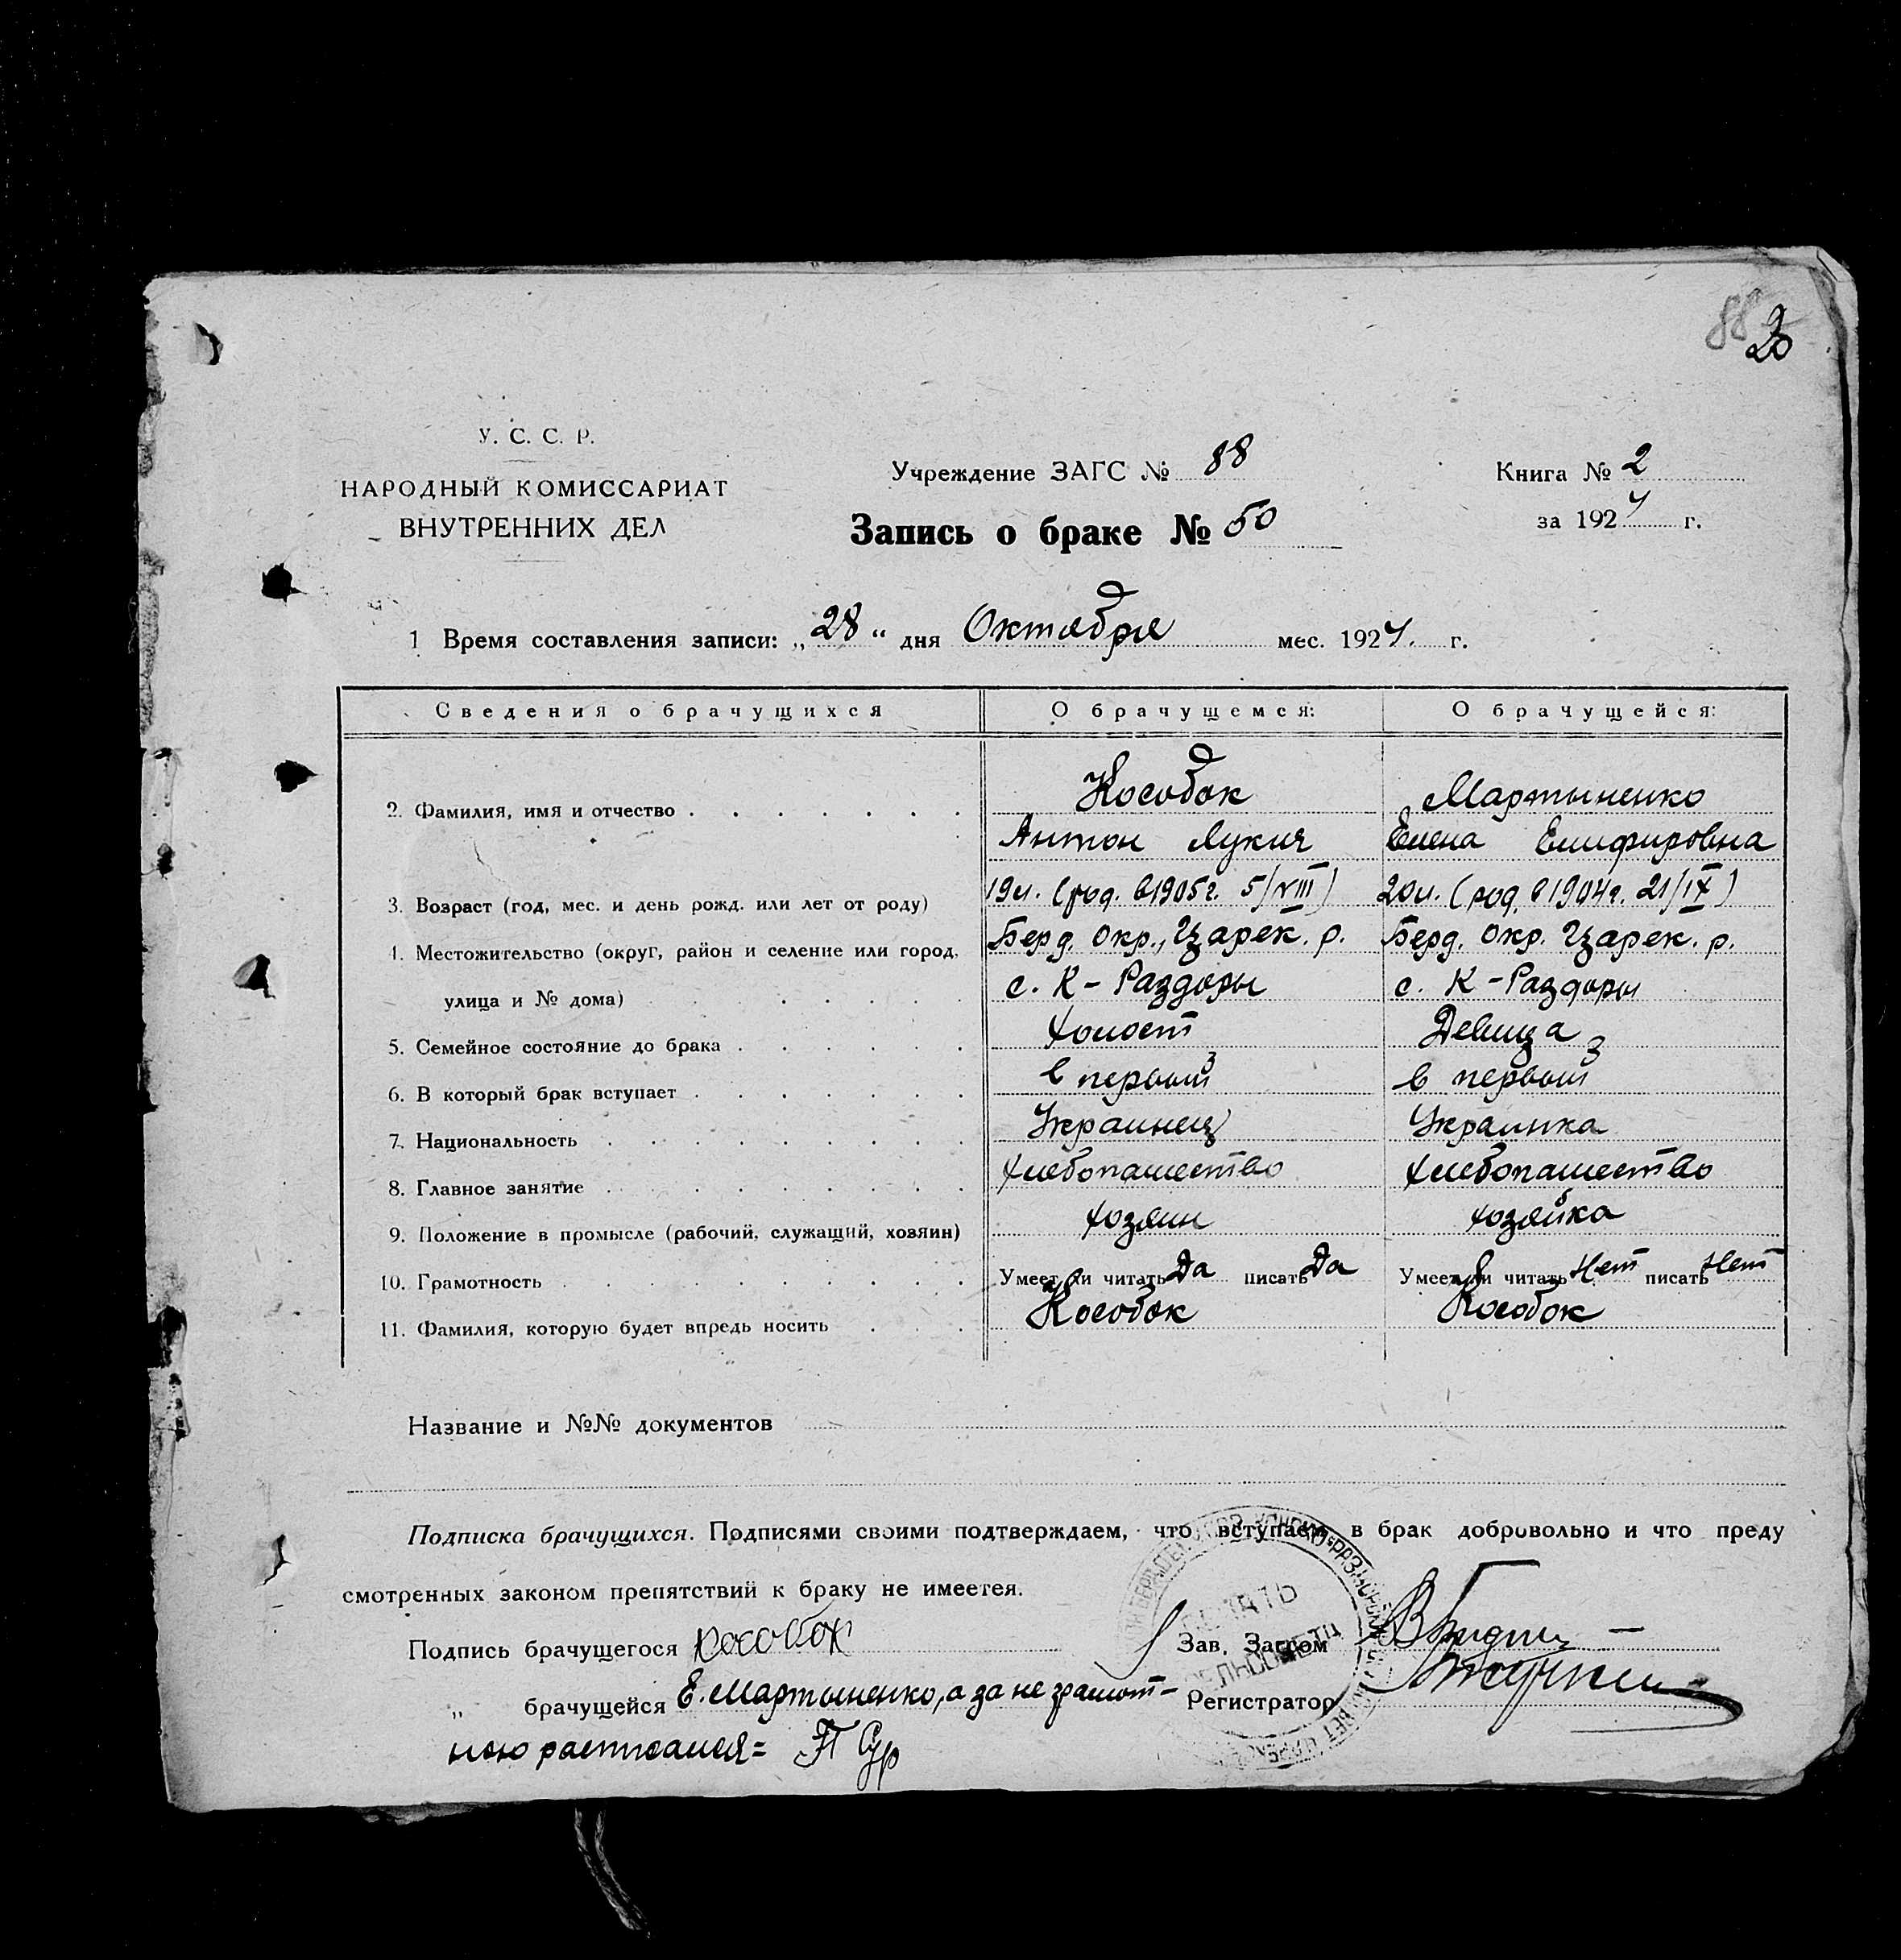 88 25
У. С. С. Р.
НАРОДНЫЙ КОМИССАРИАТ
ВНУТРЕННИХ ДЕЛ
Учреждение ЗАГС № 88
Запись о браке № 50
Книга № 2
за 1924 г.
1 Время составления записи: „28“ дня Октября мес. 1924. г.
Сведения о брачущихся О брачущемся: О брачущейся:
Кособок Мартыненко
2. Фамилия, имя и отчество
Антон Лукич Елена
3. Возраст (год, мес. и день рожд. или лет от роду) 19л. (род. в 1905г. 5/VIII) 20л. (род. в 1904г. 21/IX)
4. Местожительство (округ, район и селение или город, Берд. окр., Цзарек. р. Берд. окр. Цзарек. р.
улица и № дома) с. К-Раздоры с. К-Раздоры
5. Семейное состояние до брака Холост Девица
6. В который брак вступает в первый в первый
7. Национальность Украинец Украинка
8. Главное занятие Хлебопашество Хлебопашество
9. Положение в промысле (рабочий, служащий, хозяин) Хозяин Хозяйка
10. Грамотность Умеет ли читать Да писать Да Умеет ли читать Нет писать Нет
11. Фамилия, которую будет впредь носить Кособок Кособок
Название и №№ документов
Подписка брачущихся. Подписями своими подтверждаем, что вступаем в брак добровольно и что преду
смотренных законом препятствий к браку не имеется.
Подпись брачущегося Кособок Зав. Загсом
„ брачущейся Е. Мартыненко, а за не грамот- Регистратор
ною расписался=